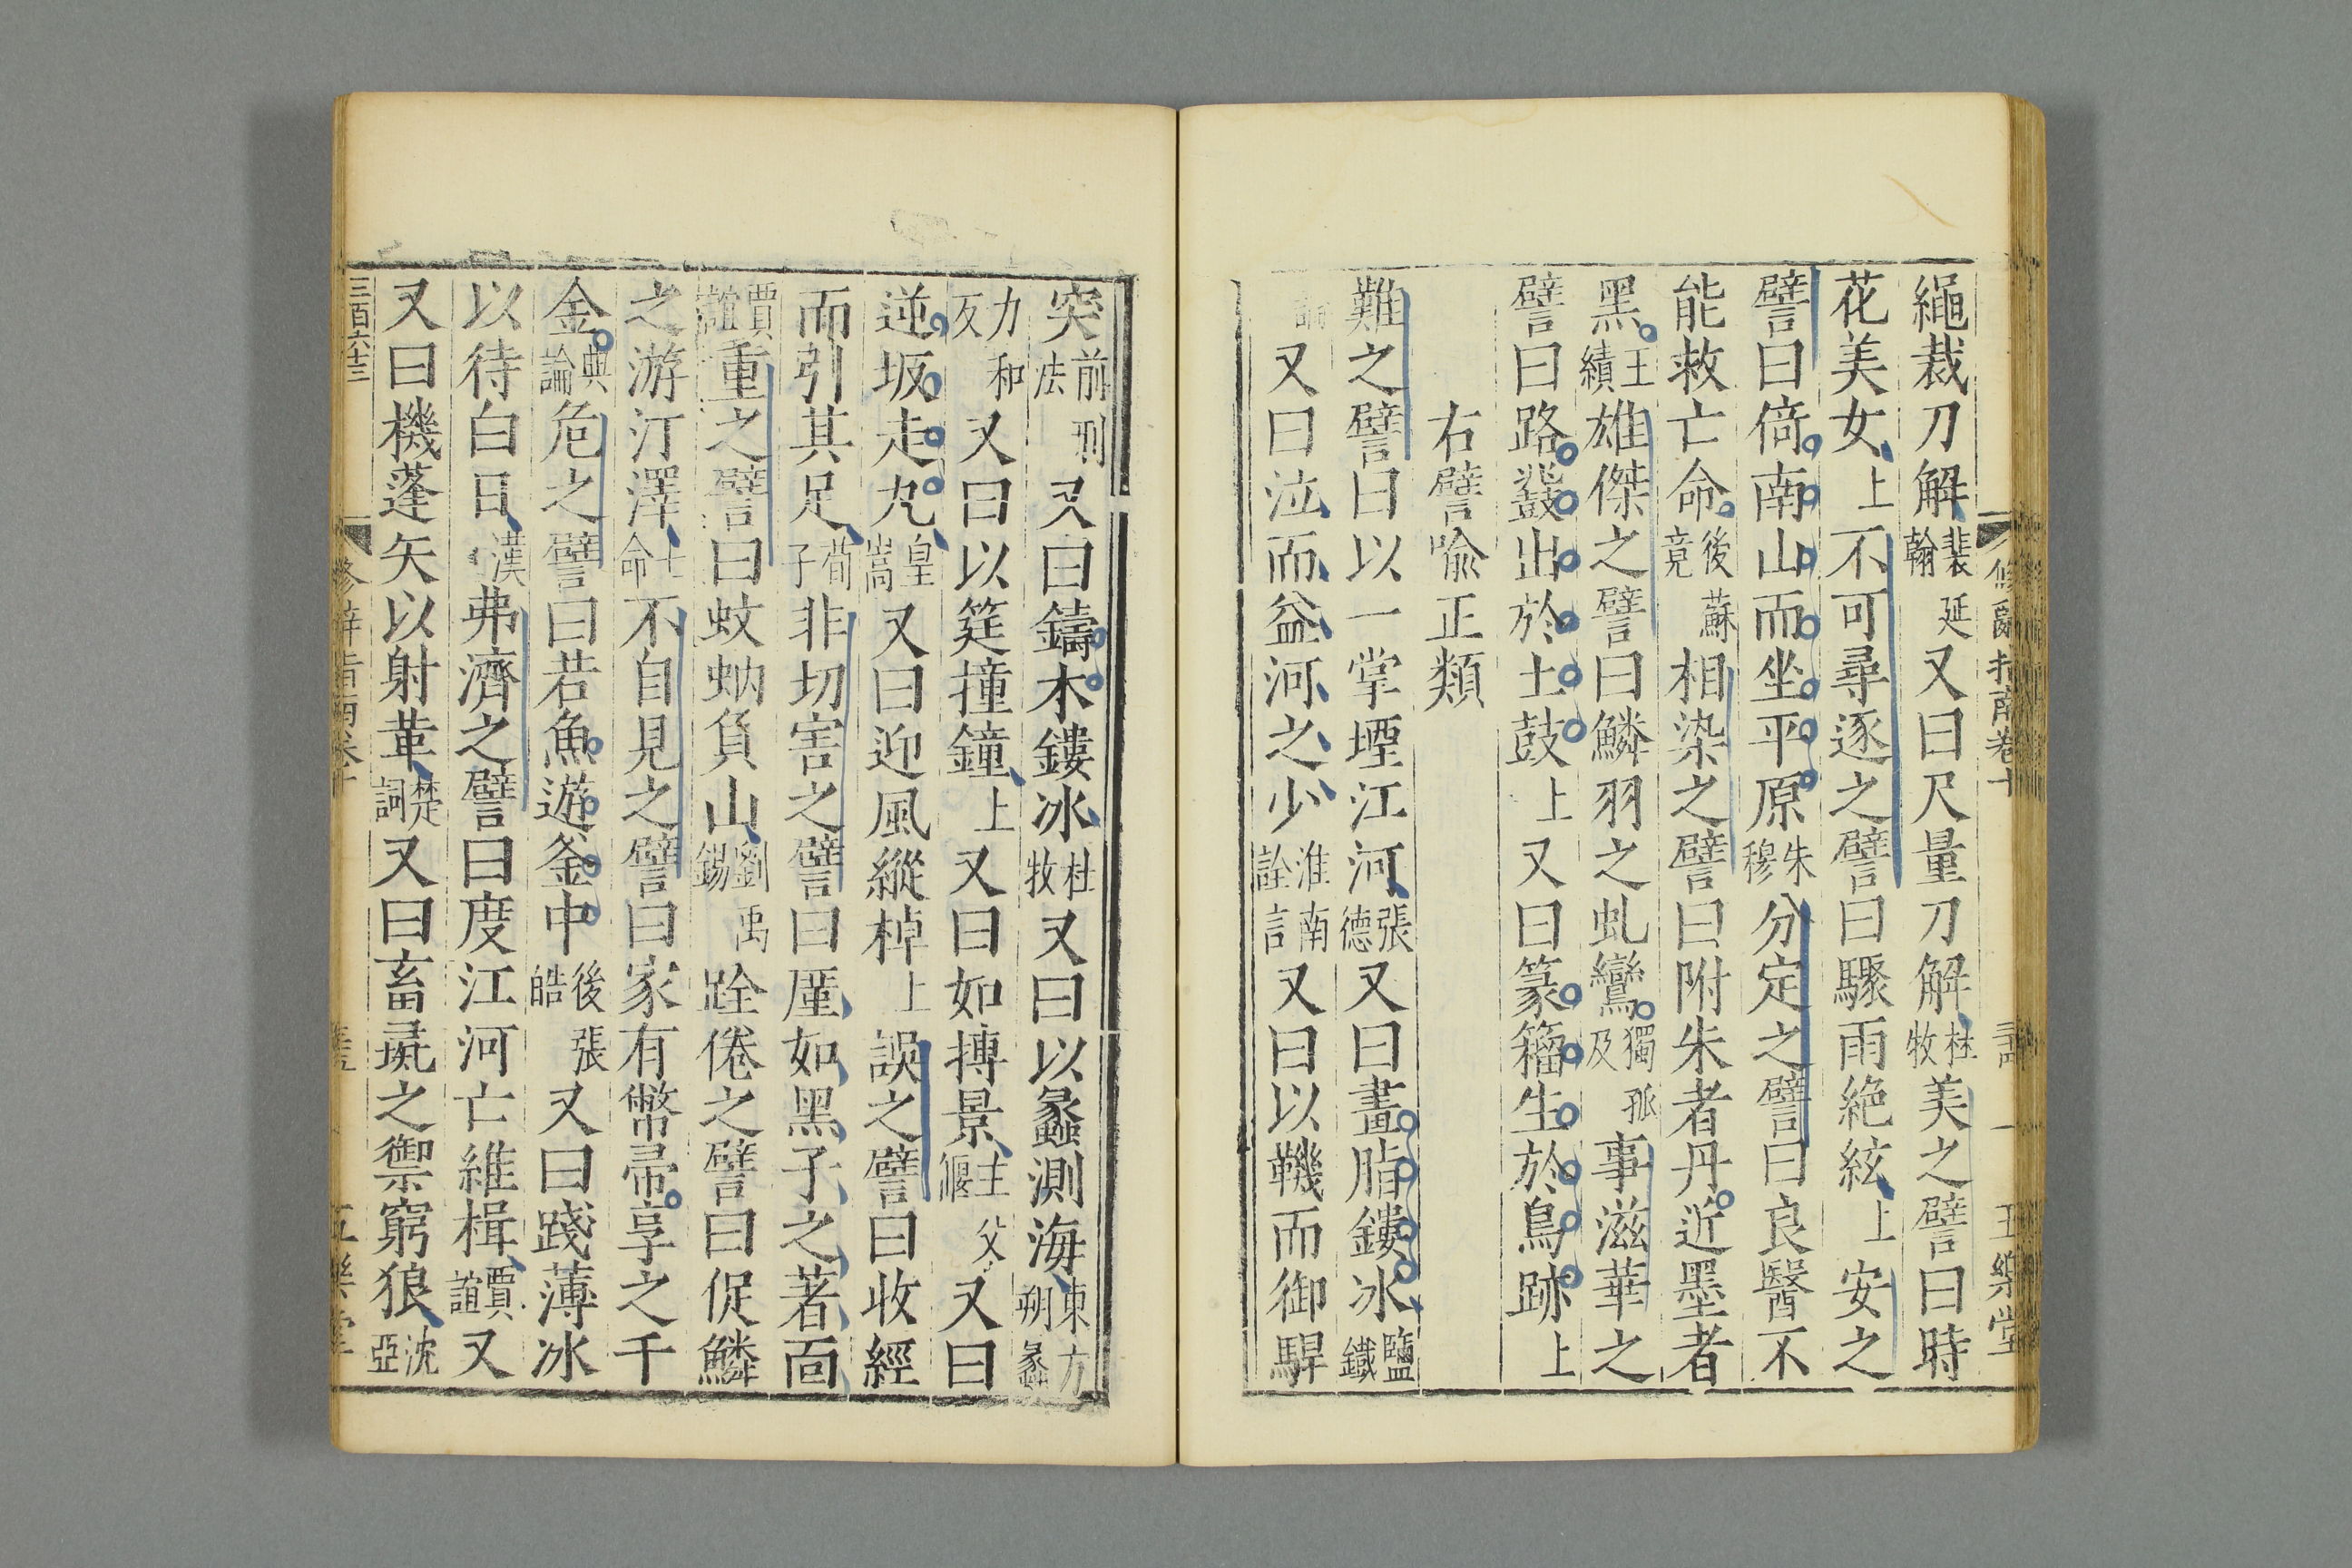 繩裁刀解裴延翰又曰尺量刀解杜牧美之譬曰時
花美女上不可尋逐之譬曰驟雨絶絃上安之
譬曰倚南山而坐平原朱穆分定之譬曰良醫不
能救亡命後蘇竟相染之譬曰附朱者丹近墨者
黑王績雄傑之譬曰鱗羽之虬鸞獨孤及事滋華之
譬曰路鼗出於土鼓上又曰篆籀生於鳥跡上
右譬喻正類
難之譬曰以一掌堙江河張德又曰畫脂鏤冰鹽鐵
論又曰泣而益河之少淮南詮言又曰以鞿而御駻
突前刑法又曰鑄木鏤冰杜牧又曰以蠡測海東方朔蠡
力和反又曰以筳撞鐘上又曰如摶景主父偃又曰
逆坂走丸皇嵩又曰迎風縱棹上誤之譬曰收經
而引其足荀子非切害之譬曰厪如黑子之著面
賈誼重之譬曰蚊蚋負山劉禹錫跧倦之譬曰促鱗
之游汀澤士命不自見之譬曰家有幣帚享之千
金典論危之譬曰若魚遊釜中後張皓又曰踐薄冰
以待白日漢弗濟之譬曰度江河亡維楫賈誼又
又曰機蓬矢以射革楚詞又曰畜虒之禦窮狼沈亞
修辭指南卷十
三百六十三
五樂堂